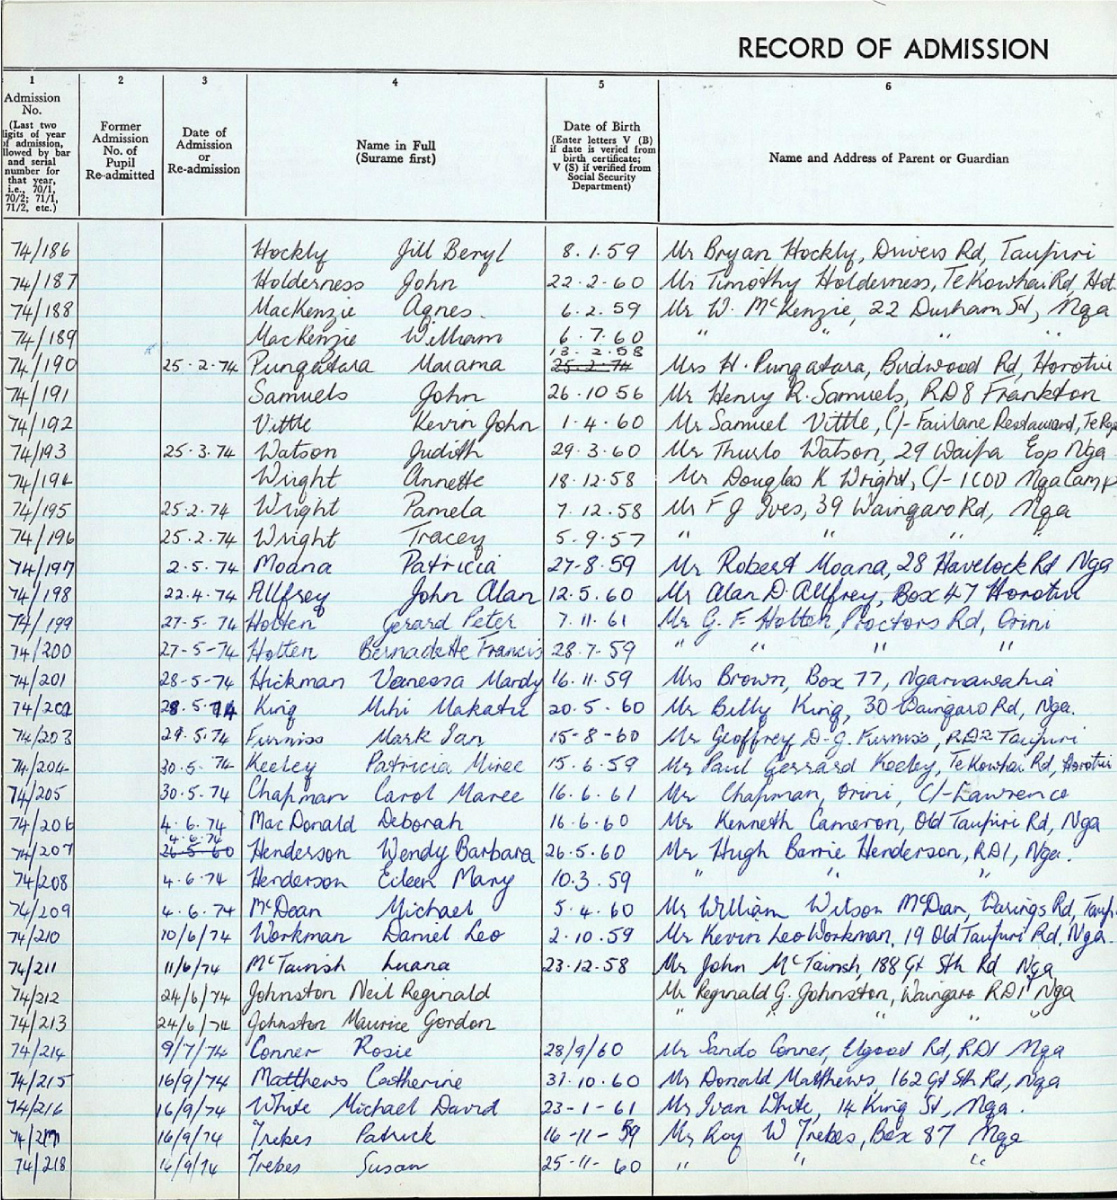 RECORD OF ADMISSION
1 2 3 4 5 6
Admission No. (Last two digits of year of admission, followed by bar and serial number for that year, i.e., 70/1, 70/2; 71/1, 71/2, etc.)
Former Admission No. of Pupil Re-admitted
Date of Admission or Re-admission
Name in Full (Surame first)
Date of Birth (Enter letters V (B) if date is veried from birth certificate; V (S) if verified from Social Security Department)
Name and Address of Parent or Guardian
74/186 Hockly Jill Beryl 8.1.59 Mr Bryan Hockly, Drivers Rd, Taupiri
74/187 Holderness John 22-2-60 Mr Timothy Holderness, Te Kowhai Rd, Hot
74/188 MacKenzie Agnes. 6.2.59 Mr W. McKenzie, 22 Durham St, Nga
74/189 MacKenzie William 6.7.60 " " "
74/190 25.2.74 Pungatara Marama 13.2.58 25.2.74 Mrs H. Pungatara, Birdwood Rd, Horotiu
74/191 Samuels John 26.10 56 Mr Henry R. Samuels, RD8 Frankton
74/192 Vittle Kevin John 1.4.60 Mr Samuel Vittle, C/- Fairlane Restaurant, Te Rap
74/193 25.3.74 Watson Judith 29.3.60 Mr Thurlo Watson, 29 Waipa Esp Nga
74/194 Wright Annette 18.12.58 Mr Douglas K Wright, C/- 1COD Nga Camp
74/195 25.2.74 Wright Pamela 7.12.58 Mr F J Ives, 39 Waingaro Rd, Nga
74/196 25.2.74 Wright Tracey 5-9.57 " " "
74/197 2.5.74 Moana Patricia 27-8.59 Mr Robert Moana, 28 Havelock Rd Nga
74/198 22.4.74 Allfrey John Alan 12.5.60 Mr Alan D. Allfrey, Box 47 Horotiu
74/199 27-5.74 Holten Gerard Peter 7.11.61 Mr G. F. Holten, Proctors Rd, Orini
74/200 27-5-74 Holten Bernadette Francis 28.7.59 " " " "
74/201 28-5-74 Hickman Vanessa Mardy 16.11.59 Mrs Brown, Box 77, Ngaruawahia
74/202 28.5.74 King Mihi Makatu 20.5.60 Mr Billy King, 30 Waingaro Rd, Nga.
74/203 29.5.74 Furniss Mark Ian 15-8-60 Mr Geoffrey D-G. Furniss, RD2 Taupiri
74/204 30.5.74 Keeley Patricia Miree 15.6.59 Mr Paul Gerrard Keeley, Te Kowhai Rd, Horotiu
74/205 30.5.74 Chapman Carol Maree 16.6.61 Mr Chapman, Orini, C/- Lawrence
74/206 4.6.74 MacDonald Deborah 16.6.60 Mr Kenneth Cameron, Old Taupiri Rd, Nga
74/207 4.6.74 26.5.60 Henderson Wendy Barbara 26.5.60 Mr Hugh Barrie Henderson, RD1, Nga.
74/208 4.6.74 Henderson Eileen Mary 10.3.59 " " "
74/209 4.6.74 McDean Michael 5.4.60 Mr William Wilson McDean, Warings Rd, Taup.
74/210 10/6/74 Workman Daniel Leo 2.10.59 Mr Kevin Leo Workman, 19 Old Taupiri Rd, Nga.
74/211 11/6/74 McTainsh Luana 23.12.58 Mr John McTainsh, 188 Gt Sth Rd Nga
74/212 24/6/74 Johnston Neil Reginald Mr Reginald G. Johnston, Waingaro RD1 Nga
74/213 24/6/74 Johnston Maurice Gordon " " " "
74/214 9/7/74 Conner Rosie 28/9/60 Mr Sando Conner, Elgood Rd, RD1 Nga
74/215 16/9/74 Matthews Catherine 31.10.60 Mr Donald Matthews, 162 Gt Sth Rd, Nga
74/216 16/9/74 White Michael David 23-1-61 Mr Ivan White, 14 King St, Nga.
74/217 16/9/74 Trebes Patrick 16-11-59 Mr Roy W Trebes, Box 87 Nga
74/218 16/9/74 Trebes Susan 25-11-60 " " "